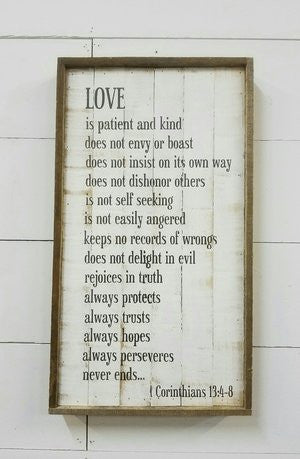 LOVE
is patient and kind
does not envy or boast
does not insist on its own way
does not dishonor others
is not self seeking
is not easily angered
keeps no records of wrongs
does not delight in evil
rejoices in truth
always protects
always trusts
always hopes
always perseveres
never ends...
1 Corinthians 13:4-8